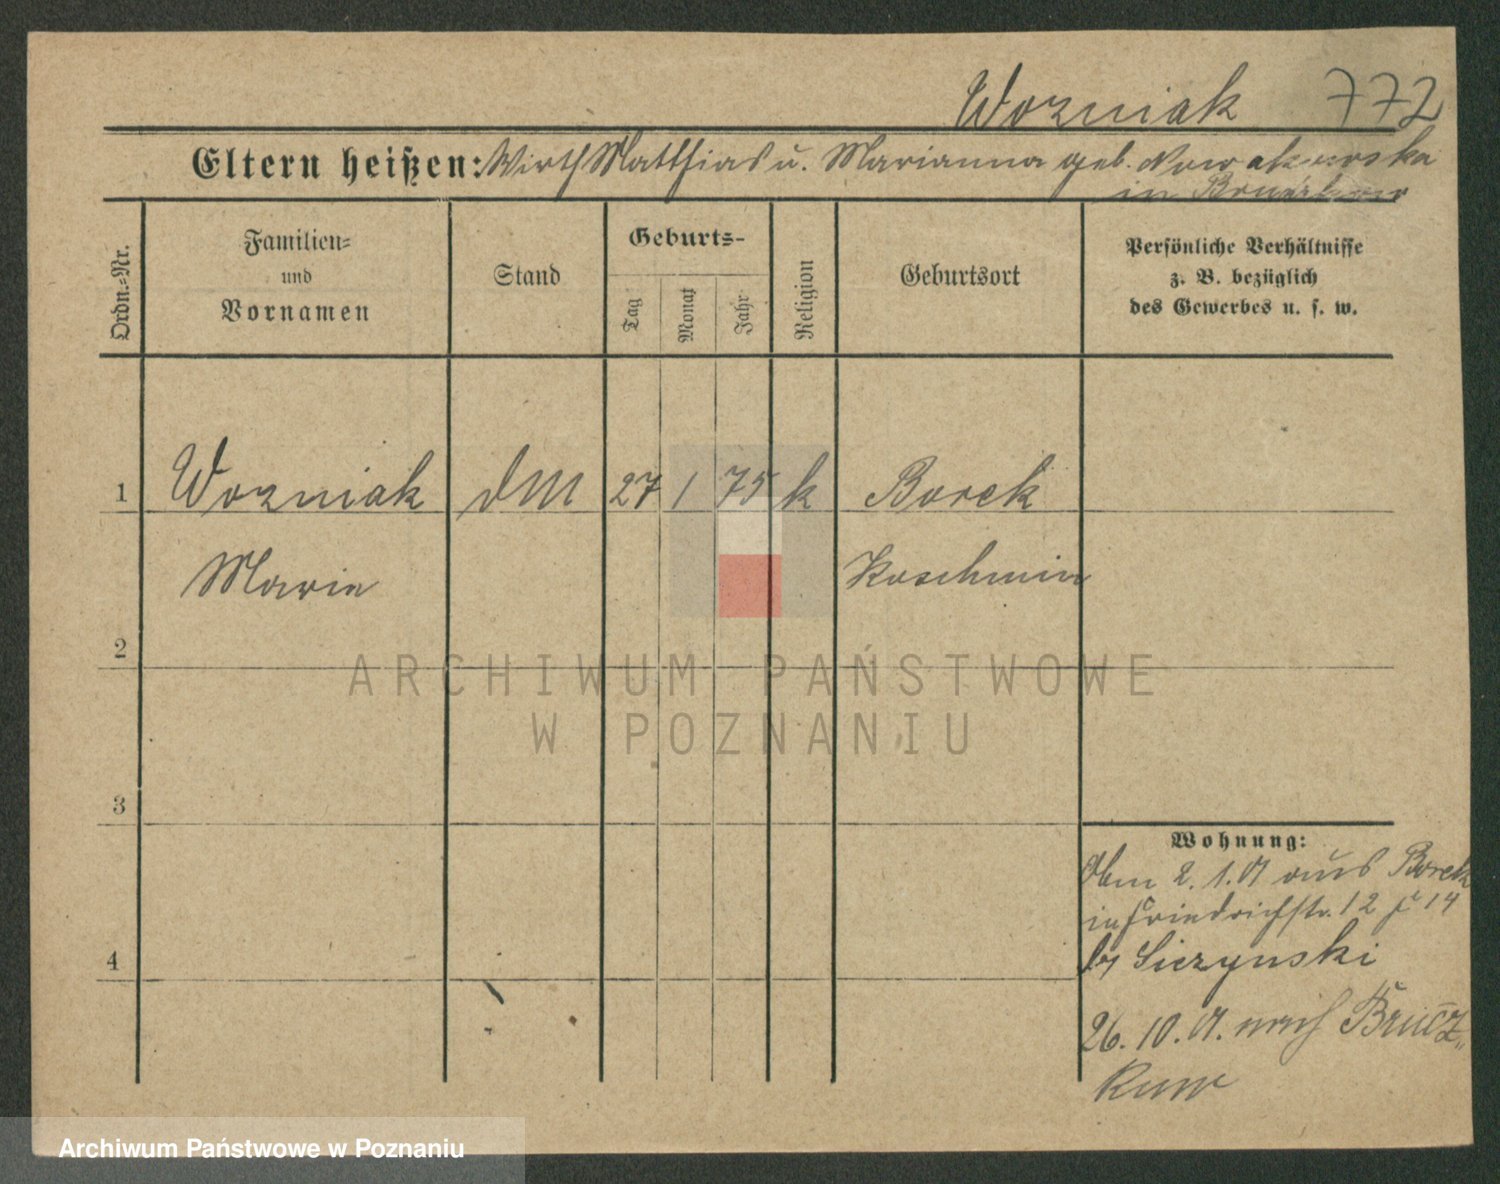 Wozniak 772
Eltern heißen: Wirth Matthias u. Marianna geb. Nowakowska
in
Ordn.-Nr.
Familien-
und
Vornamen
Stand
Geburts-
Tag
Monat
Jahr
Religion
Geburtsort
Persönliche Verhältnisse
z. B. bezüglich
des Gewerbes u. s. w.
1 Wozniak dM 27 1 75 k Borek
Marie Koschmin
2
ARCHIWUM PAŃSTWOWE
W POZNANIU
3
Wohnung:
2. 1. 01 aus Borek
in Friedrichstr. 12 14
by Siczynski
4
26. 10. 01. nach Brucz-
kuw
Archiwum Państwowe w Poznaniu